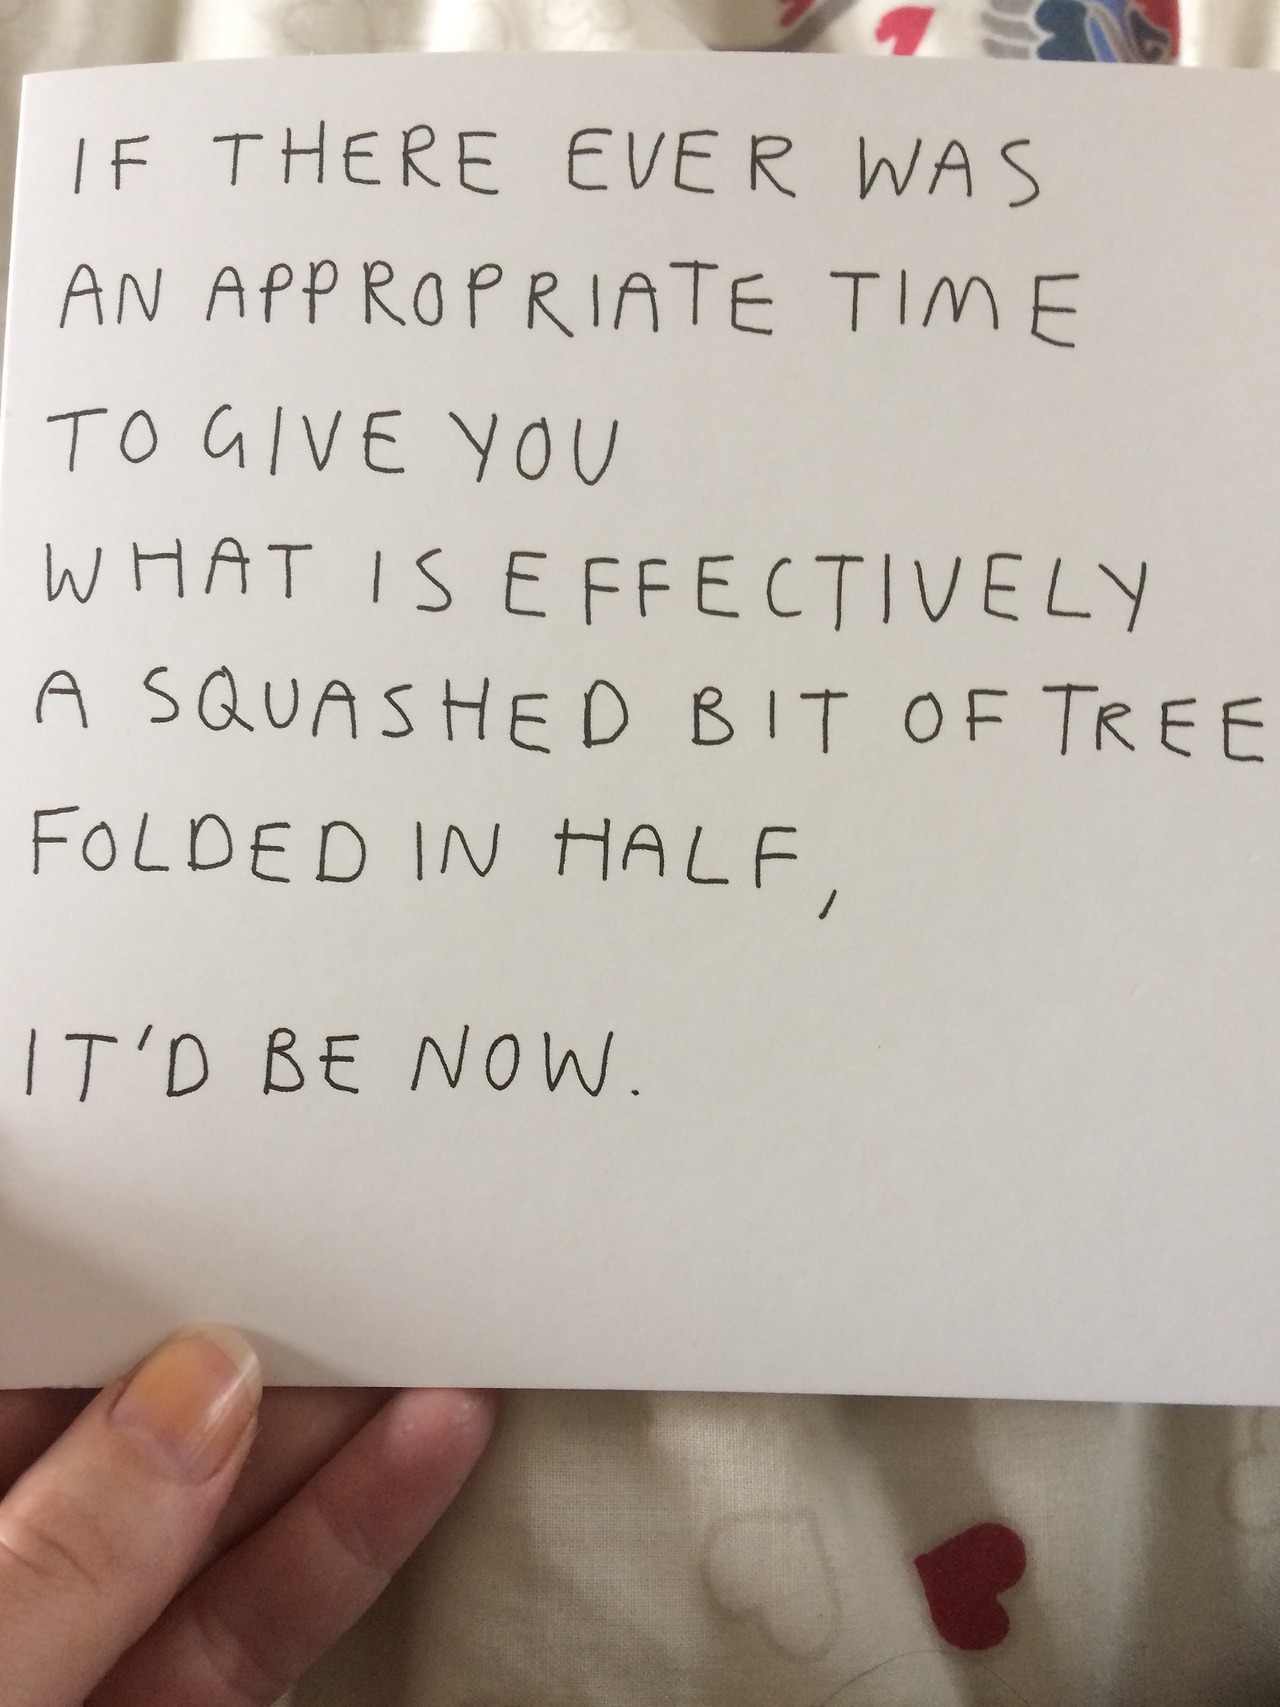 IF THERE EVER WAS
AN APPROPRIATE TIME
TO GIVE YOU
WHAT IS EFFECTIVELY
A SQUASHED BIT OF TREE
FOLDED IN HALF,
IT'D BE NOW.